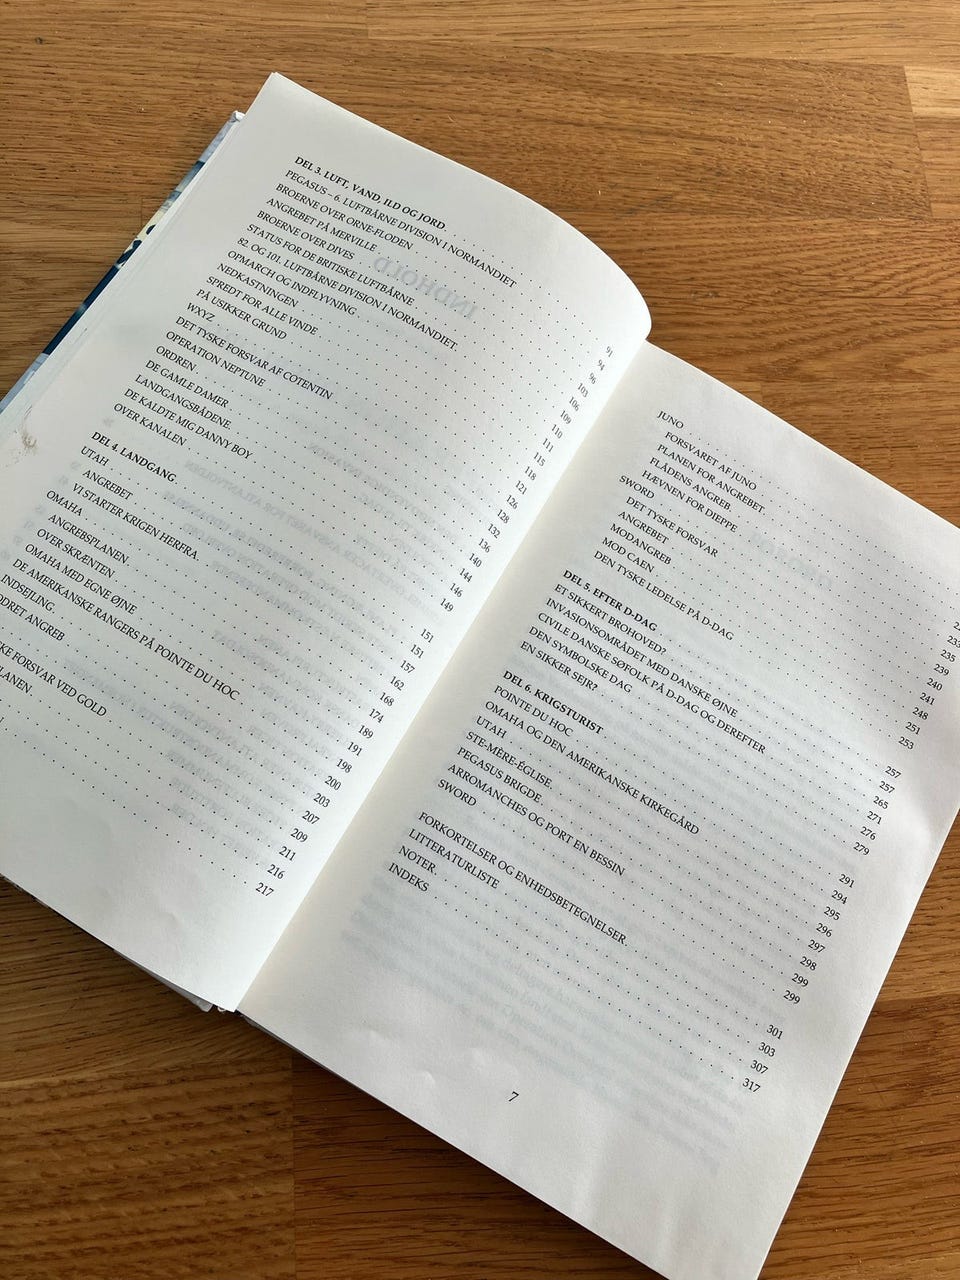 DEL 3. LUFT, VAND, ILD OG JORD. 91
PEGASUS – 6. LUFTBÅRNE DIVISION I NORMANDIET 94
BROERNE OVER ORNE-FLODEN 96
ANGREBET PÅ MERVILLE 103
BROERNE OVER DIVES 106
STATUS FOR DE BRITISKE LUFTBÅRNE 109
82. OG 101. LUFTBÅRNE DIVISION I NORMANDIET. 110
OPMARCH OG INDFLYVNING 111
NEDKASTNINGEN 115
SPREDT FOR ALLE VINDE 118
PÅ USIKKER GRUND 121
WXYZ 126
DET TYSKE FORSVAR AF COTENTIN 128
OPERATION NEPTUNE 132
ORDREN 136
DE GAMLE DAMER 140
LANDGANGSBÅDENE. 144
DE KALDTE MIG DANNY BOY 146
OVER KANALEN 149
DEL 4. LANDGANG. 151
UTAH 151
ANGREBET 157
VI STARTER KRIGEN HERFRA. 162
OMAHA 168
ANGREBSPLANEN 174
OVER SKRÆNTEN 189
OMAHA MED EGNE ØJNE 191
DE AMERIKANSKE RANGERS PÅ POINTE DU HOC 198
INDSEJLING. 200
ANGREB 203
207
FORSVAR VED GOLD 209
211
216
217
JUNO
FORSVARET AF JUNO
PLANEN FOR ANGREBET
FLÅDENS ANGREB. 233
HÆVNEN FOR DIEPPE 235
SWORD 239
DET TYSKE FORSVAR 240
ANGREBET 241
MODANGREB 248
MOD CAEN 251
DEN TYSKE LEDELSE PÅ D-DAG 253
DEL 5. EFTER D-DAG 257
ET SIKKERT BROHOVED? 257
INVASIONSOMRÅDET MED DANSKE ØJNE 265
CIVILE DANSKE SØFOLK PÅ D-DAG OG DEREFTER 271
DEN SYMBOLSKE DAG 276
EN SIKKER SEJR? 279
DEL 6. KRIGSTURIST 291
POINTE DU HOC 294
OMAHA OG DEN AMERIKANSKE KIRKEGÅRD 295
UTAH 296
STE-MÈRE-ÉGLISE. 297
PEGASUS BRIGDE 298
ARROMANCHES OG PORT EN BESSIN 299
SWORD 299
FORKORTELSER OG ENHEDSBETEGNELSER. 301
LITTERATURLISTE 303
NOTER. 307
INDEKS 317
7